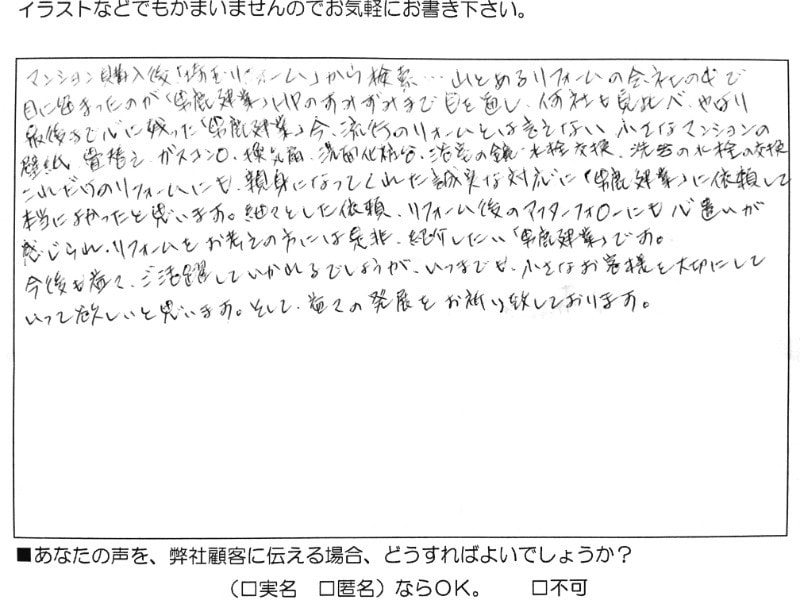 イラストなどでもかまいませんのでお気軽にお書き下さい。
マンション購入後「埼玉リフォーム」から検索…山とあるリフォームの会社の中で
目に留まったのが「男鹿建業」HPのすみずみまで目を通し、何社も見比べ、やはり
最後まで心に残った「男鹿建業」今、流行のリフォームとは言えない 小さなマンションの
壁紙、畳替え、ガスコンロ、換気扇、洗面化粧台、浴室の鏡・水栓交換、洗面の水栓の交換
これだけのリフォームにも、親身になってくれた誠実な対応に「男鹿建業」に依頼して
本当によかったと思います。細々とした依頼、リフォーム後のアフターフォローにも心遣いが
感じられ、リフォームをお考えの方には是非、紹介したい「男鹿建業」です。
今後も益々、ご活躍していかれるでしょうが、いつまでも、小さなお客様を大切にして
いって欲しいと思います。そして、益々の発展をお祈り致しております。
■あなたの声を、弊社顧客に伝える場合、どうすればよいでしょうか？
（□実名　□匿名）ならOK。　　□不可